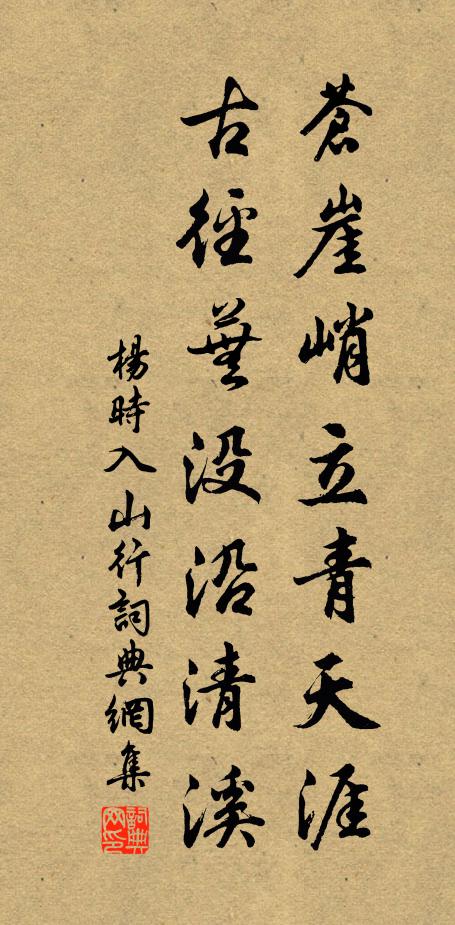 蒼崖峭立青天涯
古徑蕪没沿清溪
楊時入山行詞典網集
詞典网印